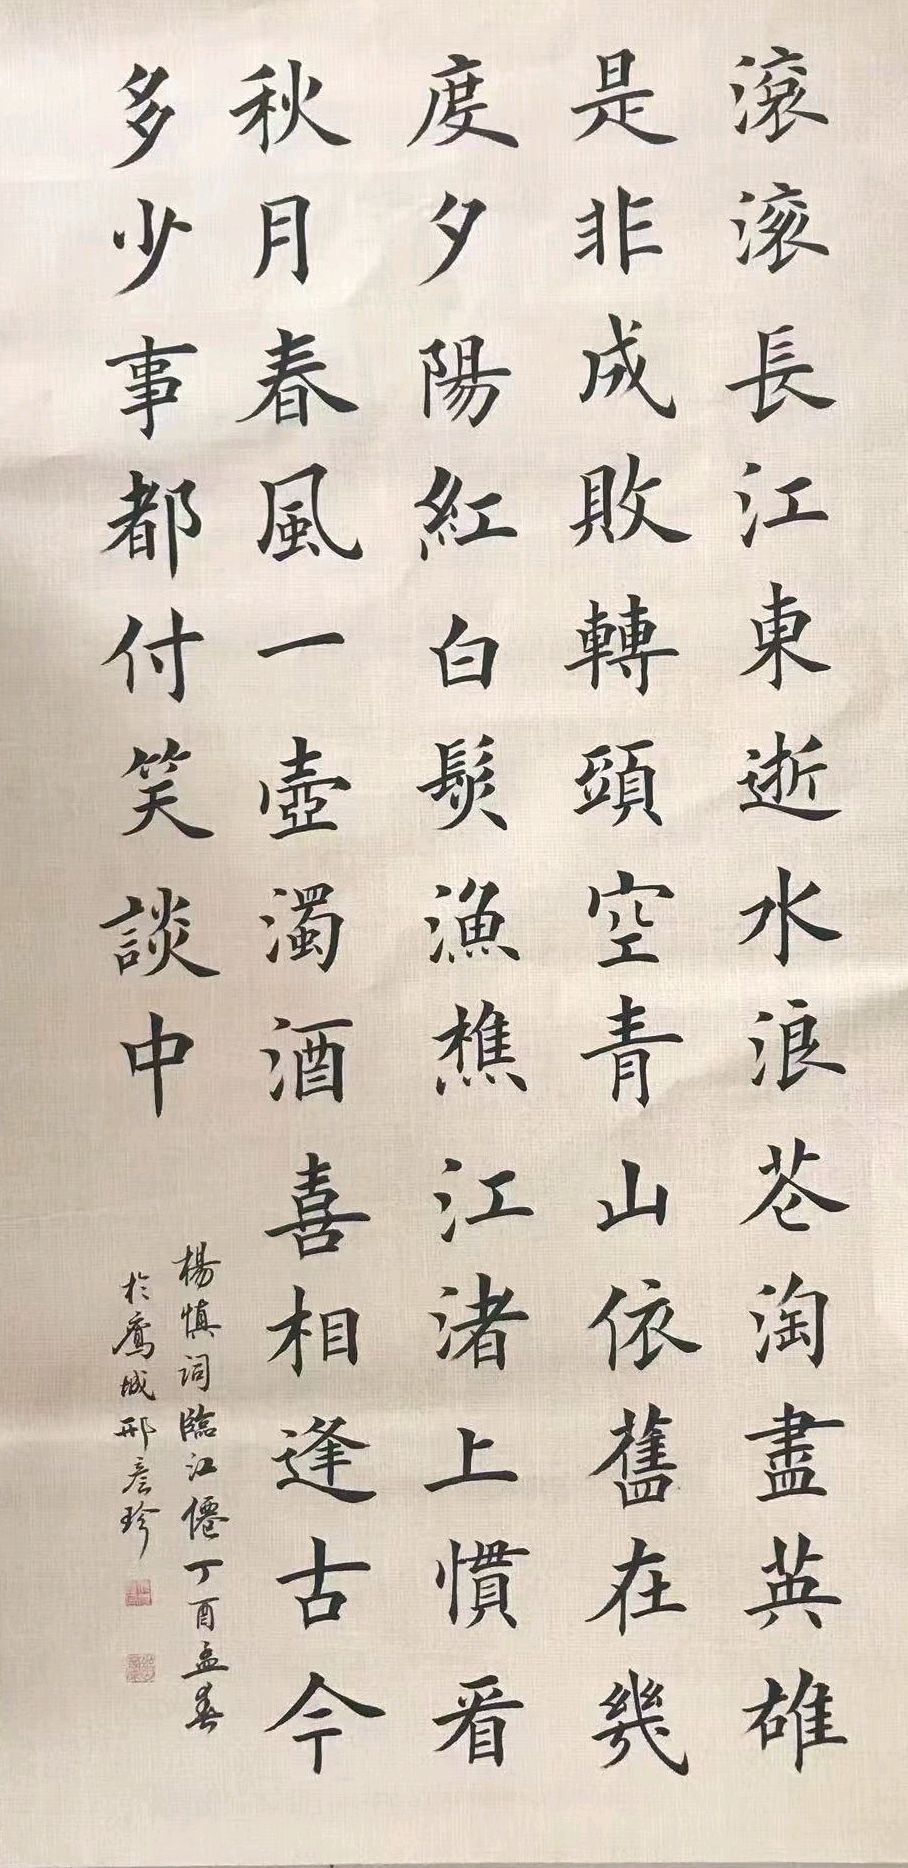 滾滾長江東逝水浪花淘盡英雄
是非成敗轉頭空青山依舊在幾
度夕陽紅白髮漁樵江渚上慣看
秋月春風一壺濁酒喜相逢古今
多少事都付笑談中
楊慎詞臨江僊丁酉孟春
於鷹城邢彥珍